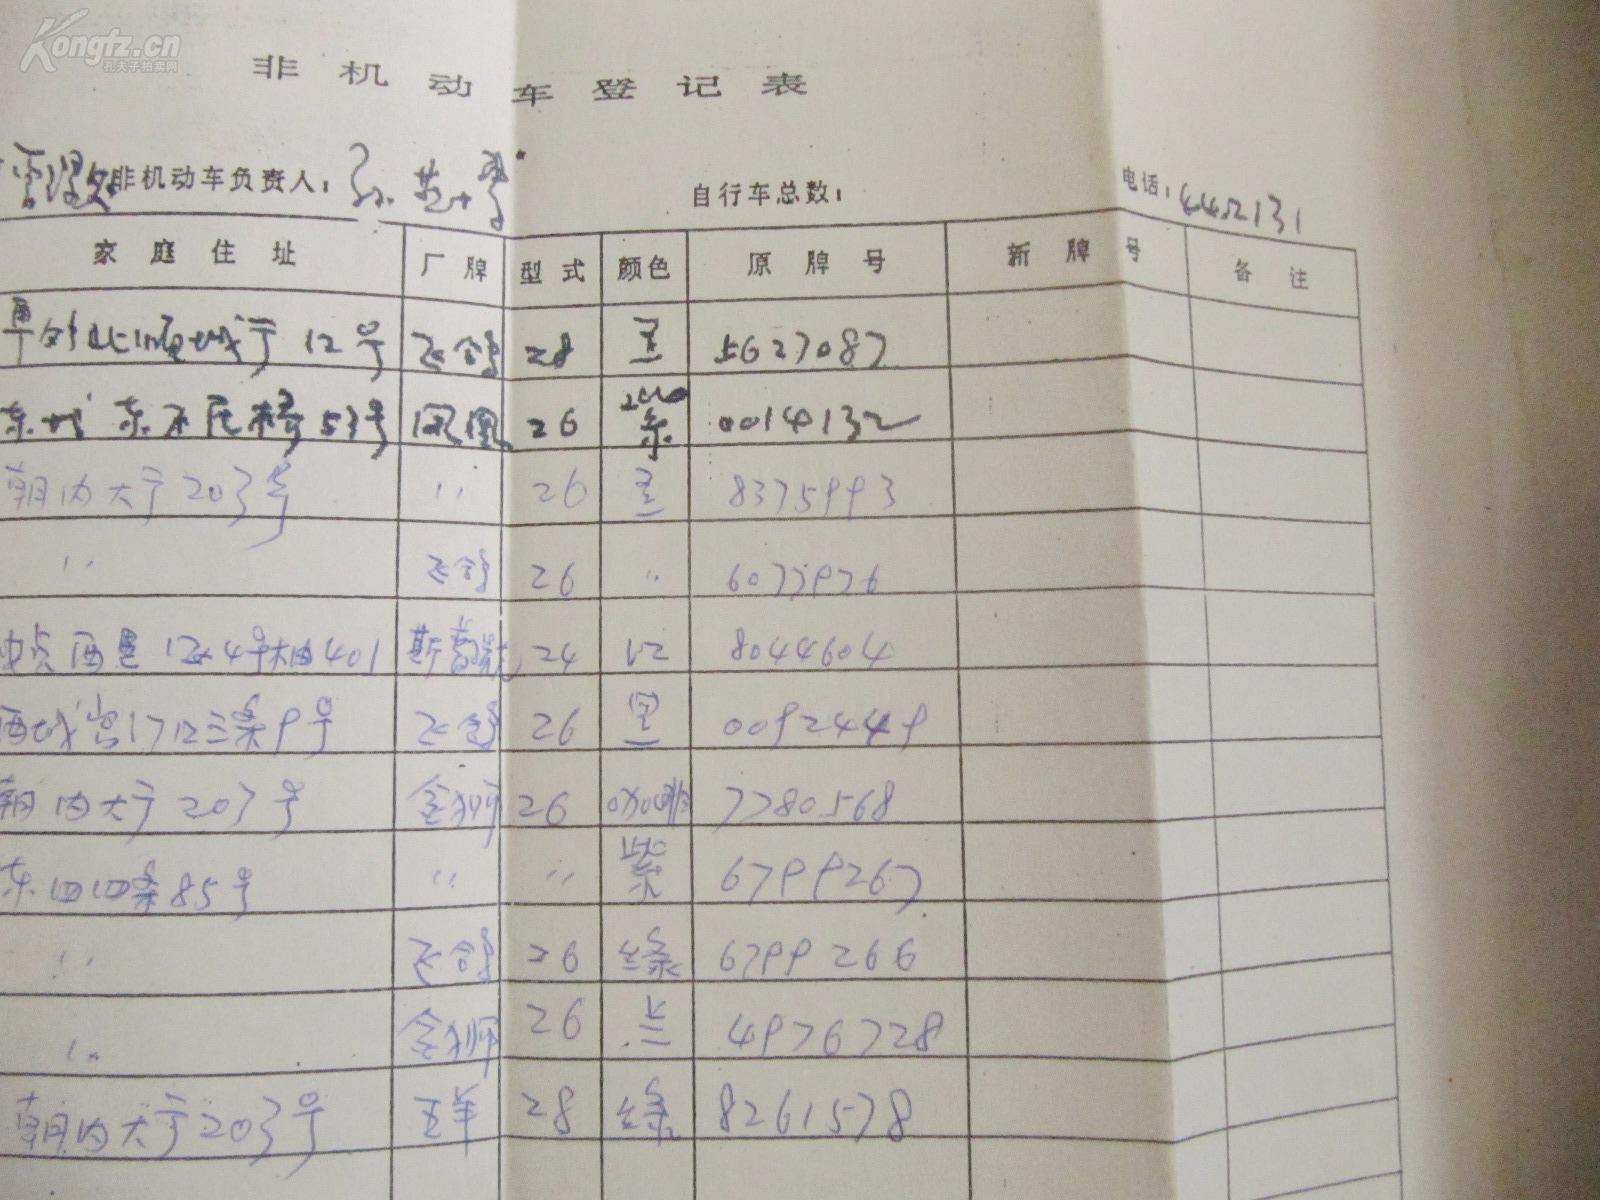 Kongfz.cn
孔夫子拍卖网
非机动车登记表
管理处非机动车负责人： 自行车总数： 电话：4452131
家庭住址 厂牌 型式 颜色 原牌号 新牌号 备注
12号 飞鸽 28 黑 5627087
东城 53号 凤凰 26 0014132
朝内大于203号 〃 26 黑 8375993
〃 飞鸽 26 〃 6073976
西里 4号 401 24 红 8044604
西城 三条9号 飞鸽 26 黑 0092449
朝内大于203号 金狮 26 咖啡 7780568
东四四条85号 〃 〃 紫 6799267
〃 飞鸽 26 绿 6799266
〃 金狮 26 兰 4976728
朝内大于203号 五羊 28 绿 8261578